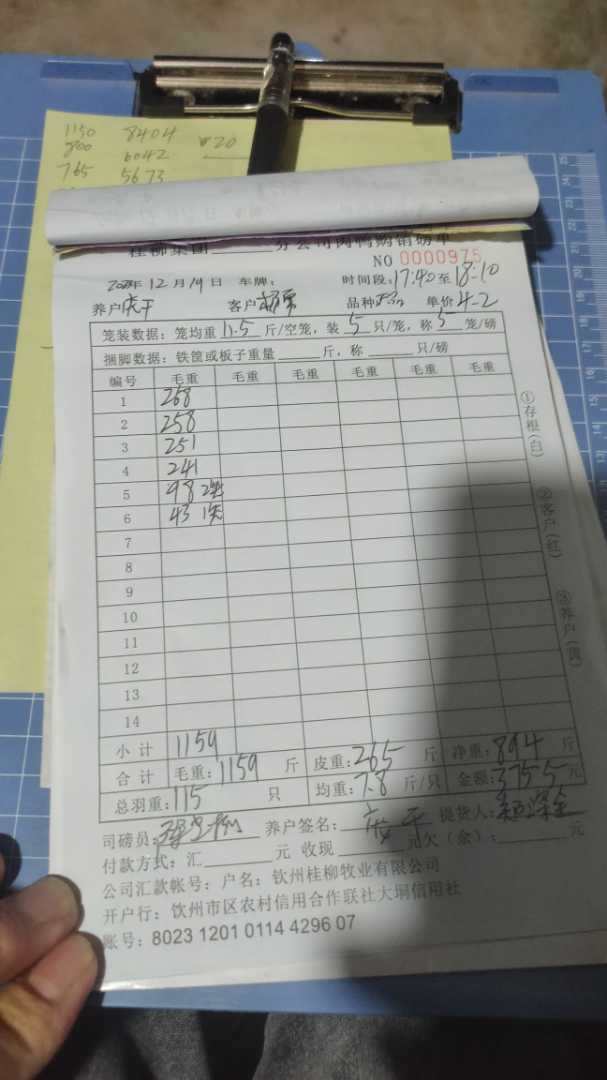 1150 8404
800 6042 20
765 5673
桂柳集团 分公司肉鸭购销磅单
NO 0000975
年12月19日 车牌: 时间段:17:40至18:10
养户 客户 品种 单价4.2
笼装数据:笼均重11.5斤/空笼,装5只/笼,称5笼/磅
捆脚数据:铁筐或板子重量 斤,称 只/磅
编号 毛重 毛重 毛重 毛重 毛重 毛重
1 268
2 258
3 251
4 241
5 98 2笼
6 43 1笼
7
8
9
10
11
12
13
14
小计 1159
合计 毛重:1159斤 皮重:265斤 净重:894斤
总羽重:115只 均重:7.8斤/只 金额:3755元
司磅员: 养户签名: 提货人:
付款方式:汇 元 收现 元欠(余): 元
公司汇款帐号:户名:钦州桂柳牧业有限公司
开户行:饮州市区农村信用合作联社大垌信用社
账号:8023 1201 0114 4296 07
①存根(白)
②客户(红)
③养户(黄)